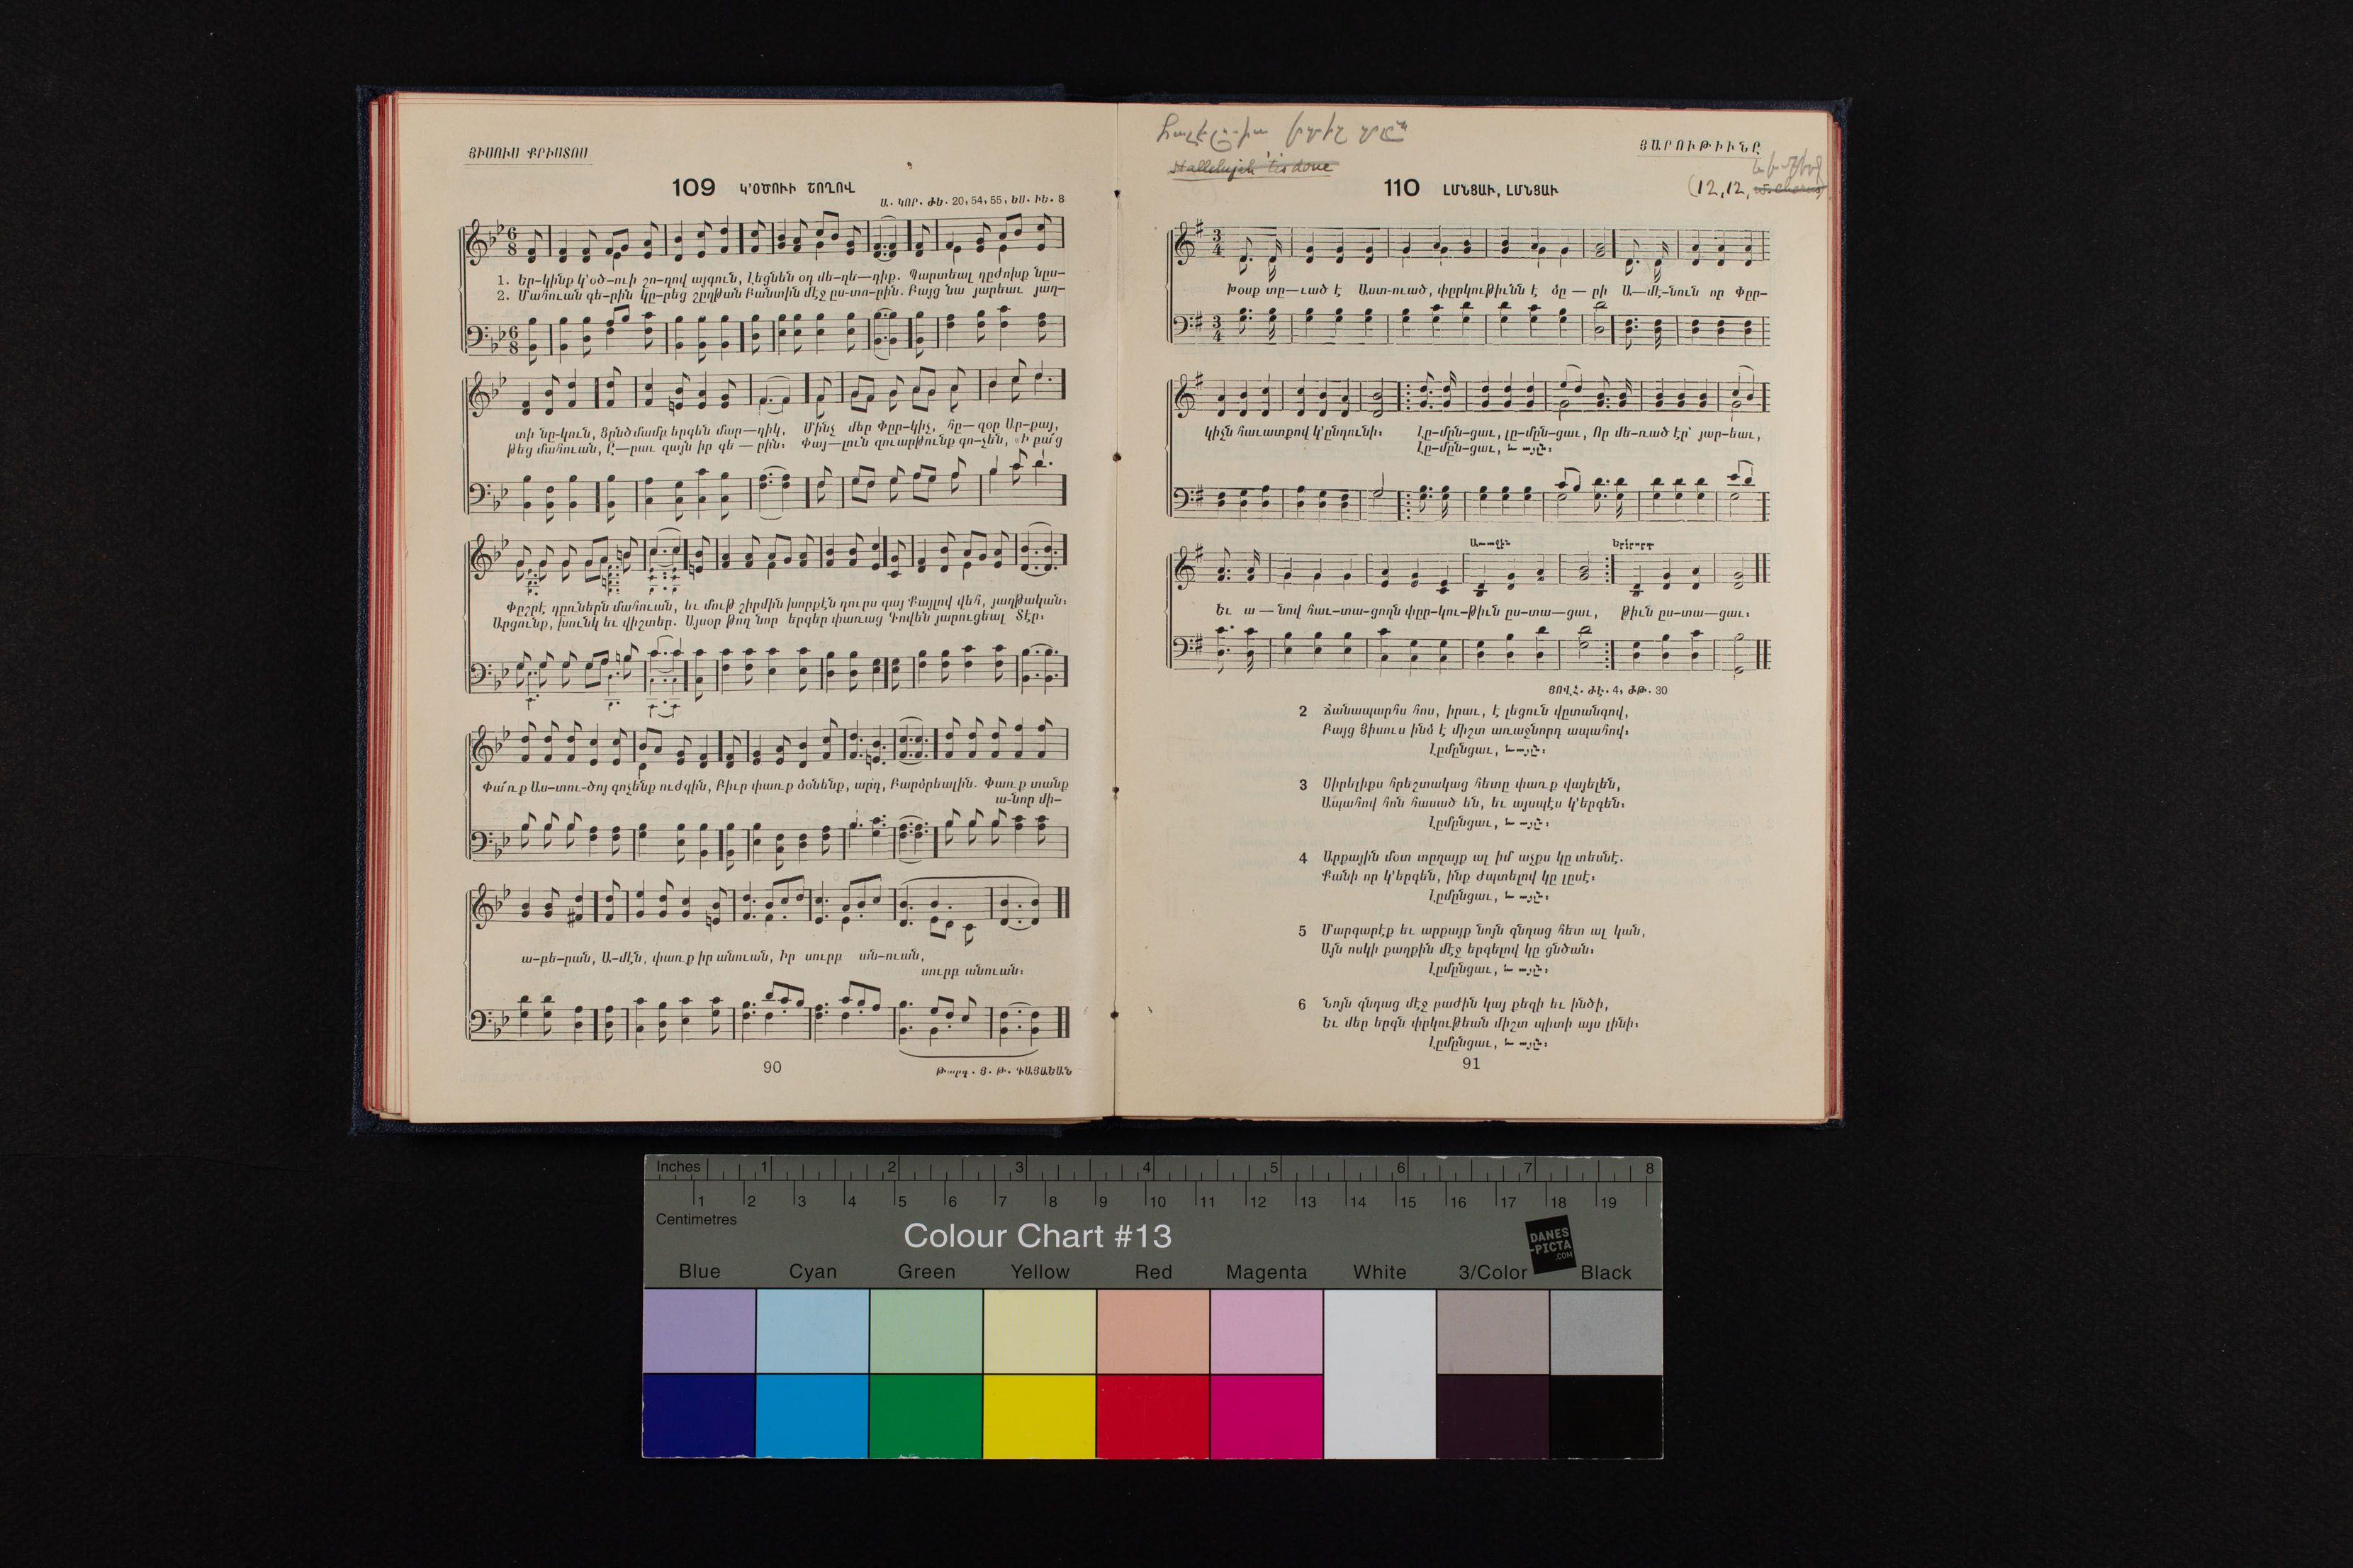 ՅԻՍՈՒՍ ՔՐԻՍՏՈՍ
109 Կ'ՕԾՈՒԻ ՇՈՂՈՎ
Ա. ԿՈՐ. ԺԵ. 20, 54, 55, ԵՍ. ԻԵ. 8
1. Եր-կինք կ'օծ-ուի շո-ղով այգուն, Լեցնեն օդ մե-ղե-դիք. Պարտեալ դըժոխք նըս-
2. Մահուան գե-րին կը-րեց շըղթան Բանտին մէջ ըս-տո-րին. Բայց նա յարեաւ յաղ-
տի նը-կուն, Ցընծմամբ երգեն մար-դիկ, Մինչ մեր Փըր-կիչ, հը-զօր Ար-քայ,
թեց մահուան, Ը-րաւ զայն իր գե-րին: Փայ-լուն զուարթունք գո-չեն, «Ի բա՛ց
Փըշրէ դըռներն մահուան, եւ մութ շիրմին խորքէն դուրս գայ Քայլով վեհ, յաղթական:
Արցունք, խունկ եւ վիշտեր. Այսօր թող նոր երգեր փառաց Գովեն յարուցեալ Տէր:
Փա՛ռք Աս-տու-ծոյ գոչենք ուժգին, Բիւր փառք ձօնենք, արդ, Բարձրեալին. Փառք տանք
ա-նոր մի-
ա-բե-րան, Ա-մէն, փառք իր անուան, Իր սուրբ ան-ուան,
սուրբ անուան:
90
Թարգ. Յ. Թ. ԳԱՅԱՅԵԱՆ
Hallelujah 'tis done
ՅԱՐՈՒԹԻՒՆԸ
110 ԼՄՆՑԱՒ, ԼՄՆՑԱՒ
(12, 12, w. Chorus)
Խօսք տը-ւած է Աստ-ուած, փըրկութիւնն է ձը-րի Ա-մէ-նուն որ Փըր-
կիչն հաւատքով կ'ընդունի: Լը-մըն-ցաւ, լը-մըն-ցաւ, Որ մե-ռած էր՝ յար-եաւ,
Լը-մըն-ցաւ, եւ այլն:
Առաջին Երկրորդ
Եւ ա-նով հաւ-տա-ցողն փըր-կու-թիւն ըս-տա-ցաւ, թիւն ըս-տա-ցաւ:
ՅՈՎՀ. ԺԷ. 4, ԺԹ. 30
2 Ճանապարհս հոս, իրաւ, է լեցուն վըտանգով,
Բայց Յիսուս ինձ է միշտ առաջնորդ ապահով:
Լըմընցաւ, եւ այլն:
3 Սիրելիքս հրեշտակաց հետը փառք վայելեն,
Ապահով հոն հասած են, եւ այսպէս կ'երգեն:
Լըմընցաւ, եւ այլն:
4 Արքային մօտ տըղայք ալ իմ աչքս կը տեսնէ.
Քանի որ կ'երգեն, ինք ժպտելով կը լըսէ:
Լըմընցաւ, եւ այլն:
5 Մարգարէք եւ արքայք նոյն գնդաց հետ ալ կան,
Այն ոսկի քաղքին մէջ երգելով կը ցնծան:
Լըմընցաւ, եւ այլն:
6 Նոյն գնդաց մէջ բաժին կայ քեզի եւ ինծի,
Եւ մեր երգն փրկութեան միշտ պիտի այս լինի:
Լըմընցաւ, եւ այլն:
91
Inches 1 2 3 4 5 6 7 8
1 2 3 4 5 6 7 8 9 10 11 12 13 14 15 16 17 18 19
Centimetres
Colour Chart #13
DANES
-PICTA
.COM
Blue Cyan Green Yellow Red Magenta White 3/Color Black